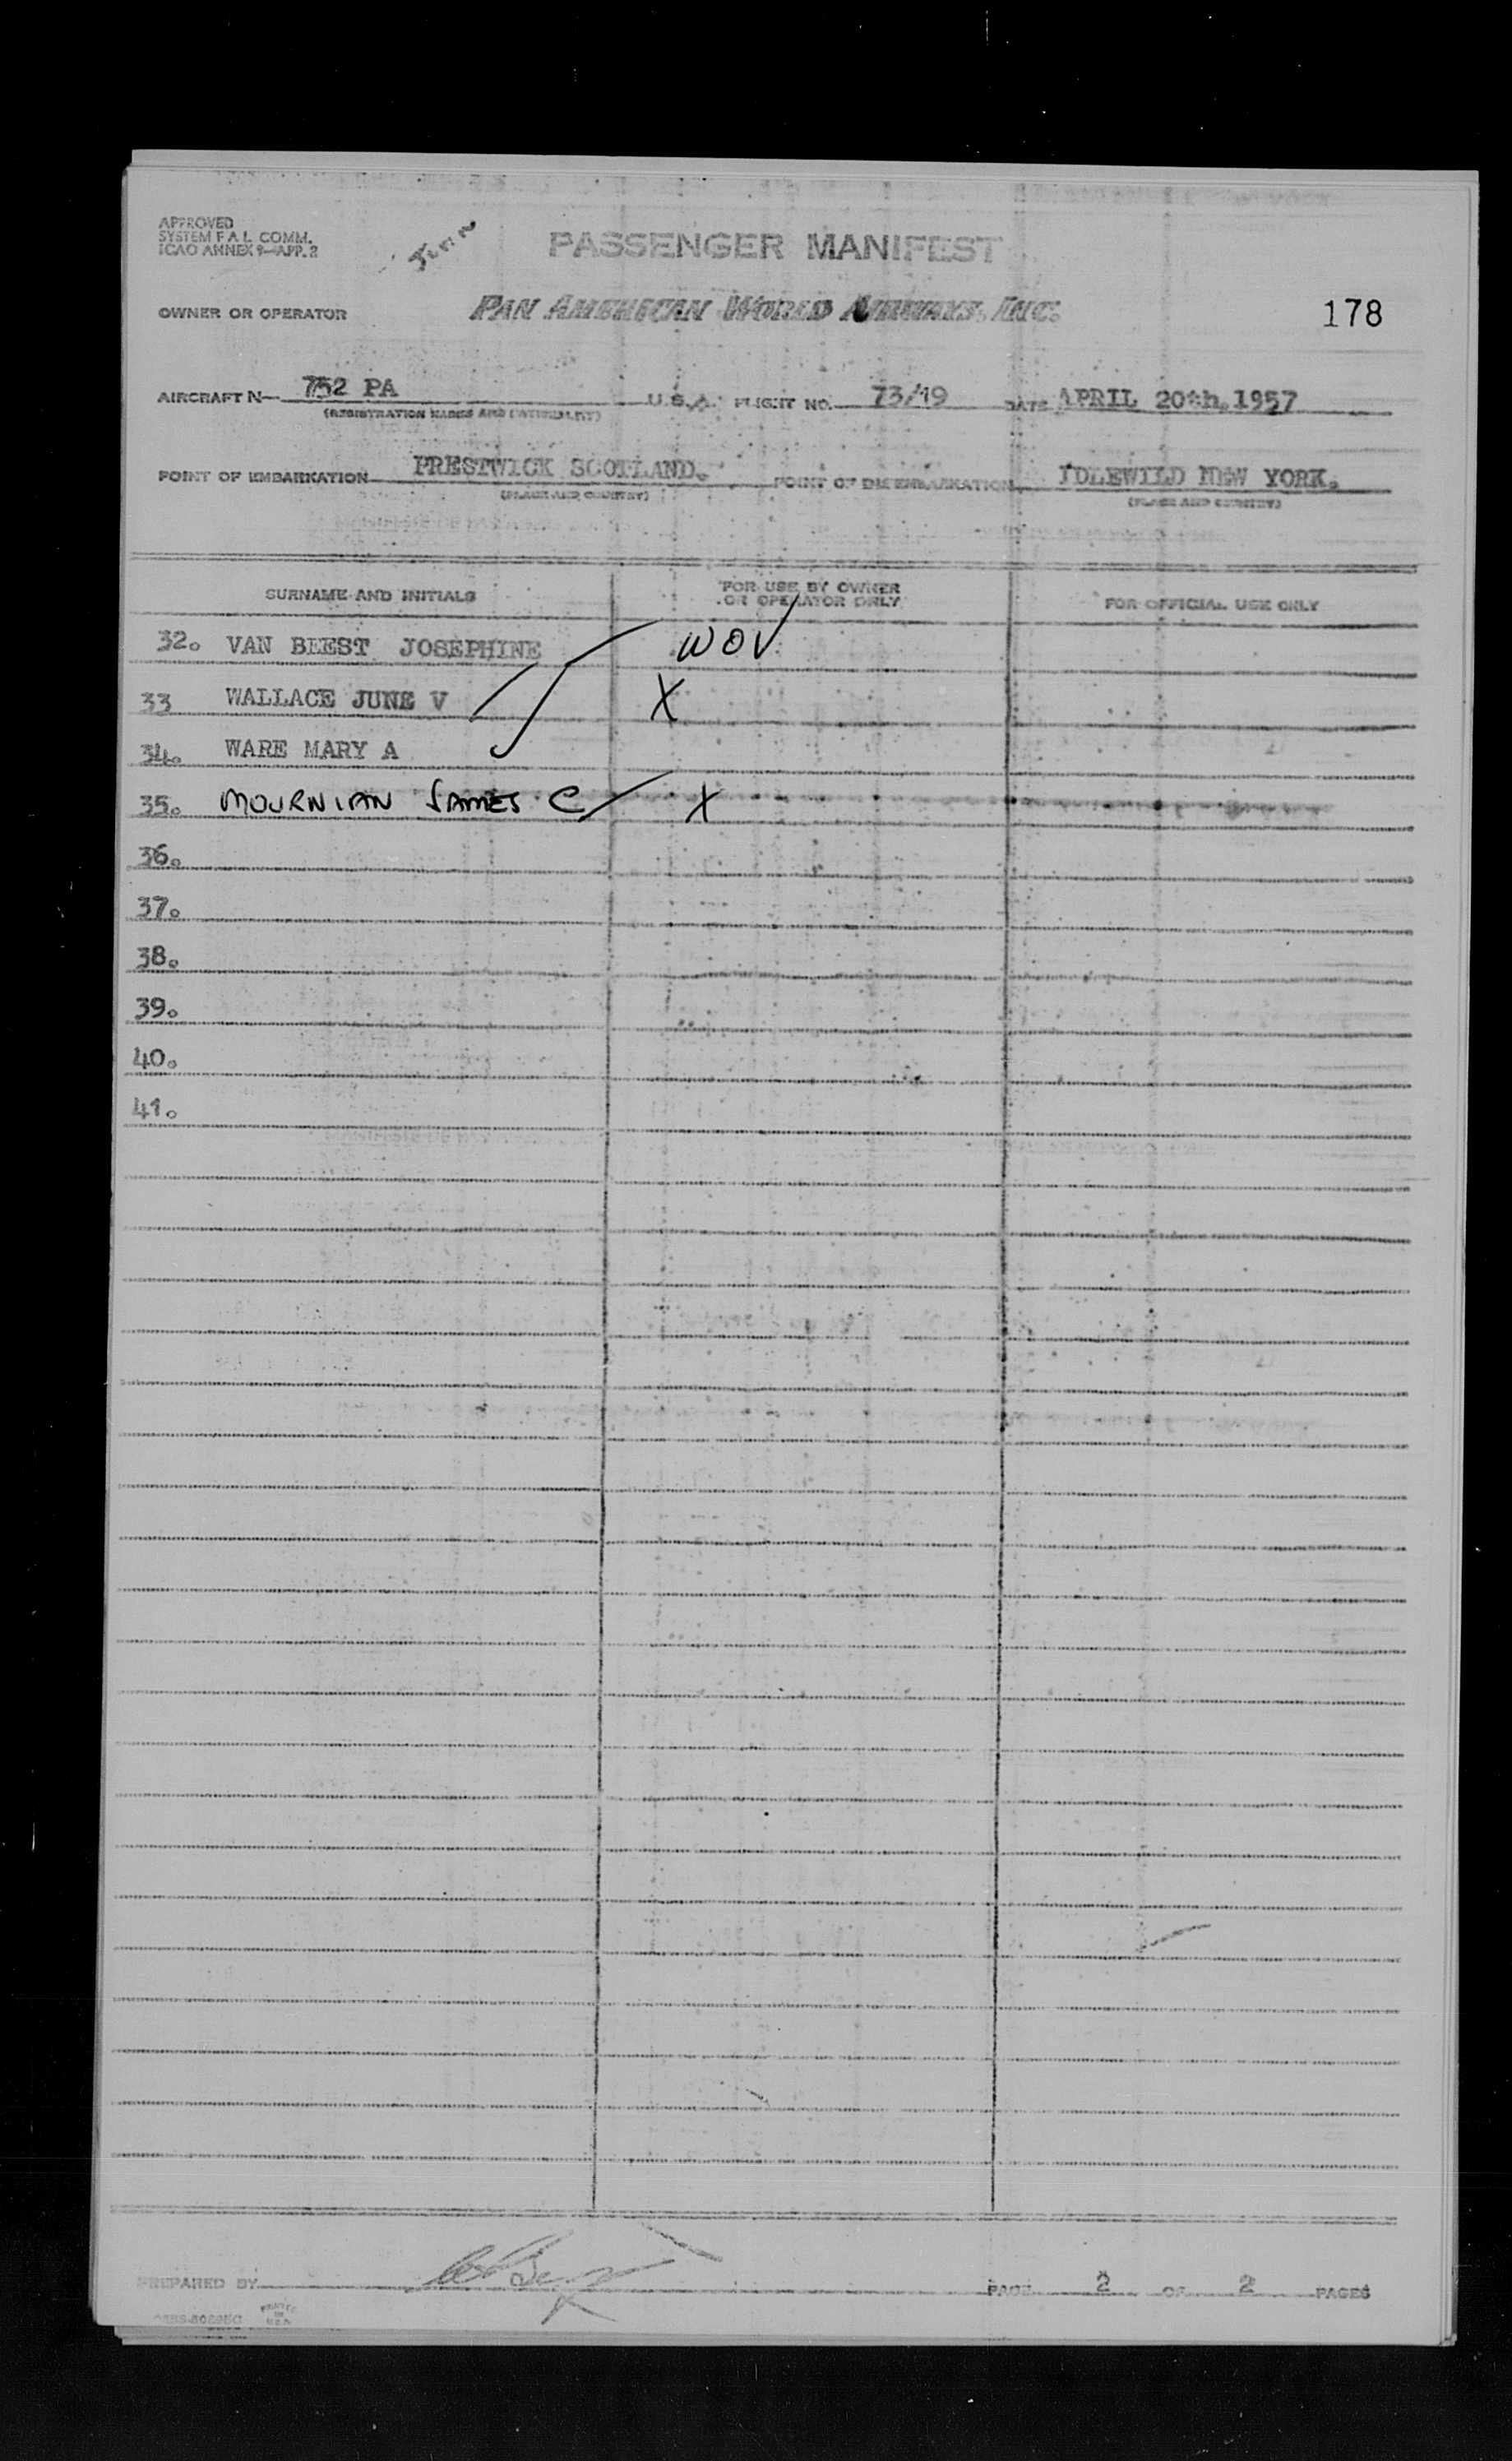 APPROVED
SYSTEM F A L COMM.
ICAO ANNEX 9—APP. 2
PASSENGER MANIFEST
OWNER OR OPERATOR PAN AMERICAN WORLD AIRWAYS, INC.
178
AIRCRAFT N— 752 PA U.S.A. FLIGHT NO. 73/19 DATE APRIL 20th.1957
(REGISTRATION MARKS AND NATIONALITY)
POINT OF EMBARKATION PRESTWICK SCOTLAND. POINT OF DISEMBARKATION IDLEWILD NEW YORK.
(PLACE AND COUNTRY) (PLACE AND COUNTRY)
SURNAME AND INITIALS FOR USE BY OWNER OR OPERATOR ONLY FOR OFFICIAL USE ONLY
32. VAN BEEST JOSEPHINE WOV
33 WALLACE JUNE V X
34. WARE MARY A
35. MOURNIAN JAMES C X
36.
37.
38.
39.
40.
41.
PREPARED BY PAGE 2 OF 2 PAGES
PRINTED IN U.S.A.